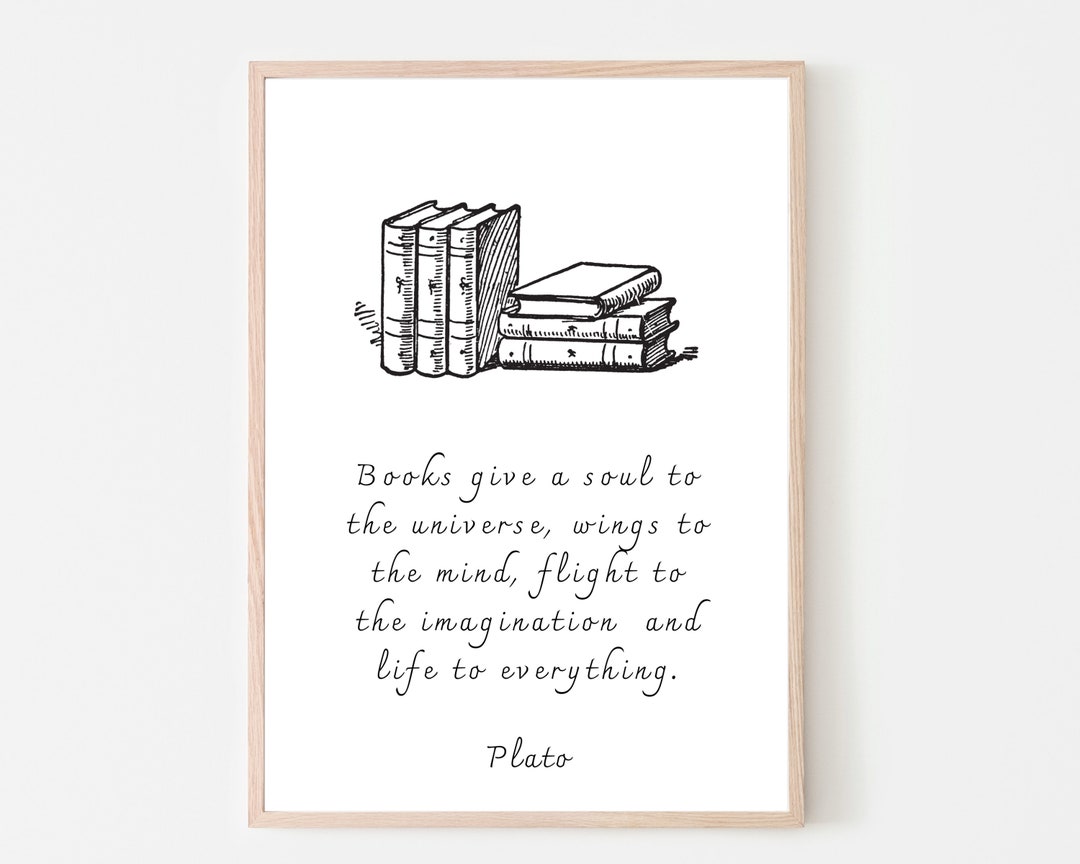 Books give a soul to
the universe, wings to
the mind, flight to
the imagination and
life to everything.
Plato